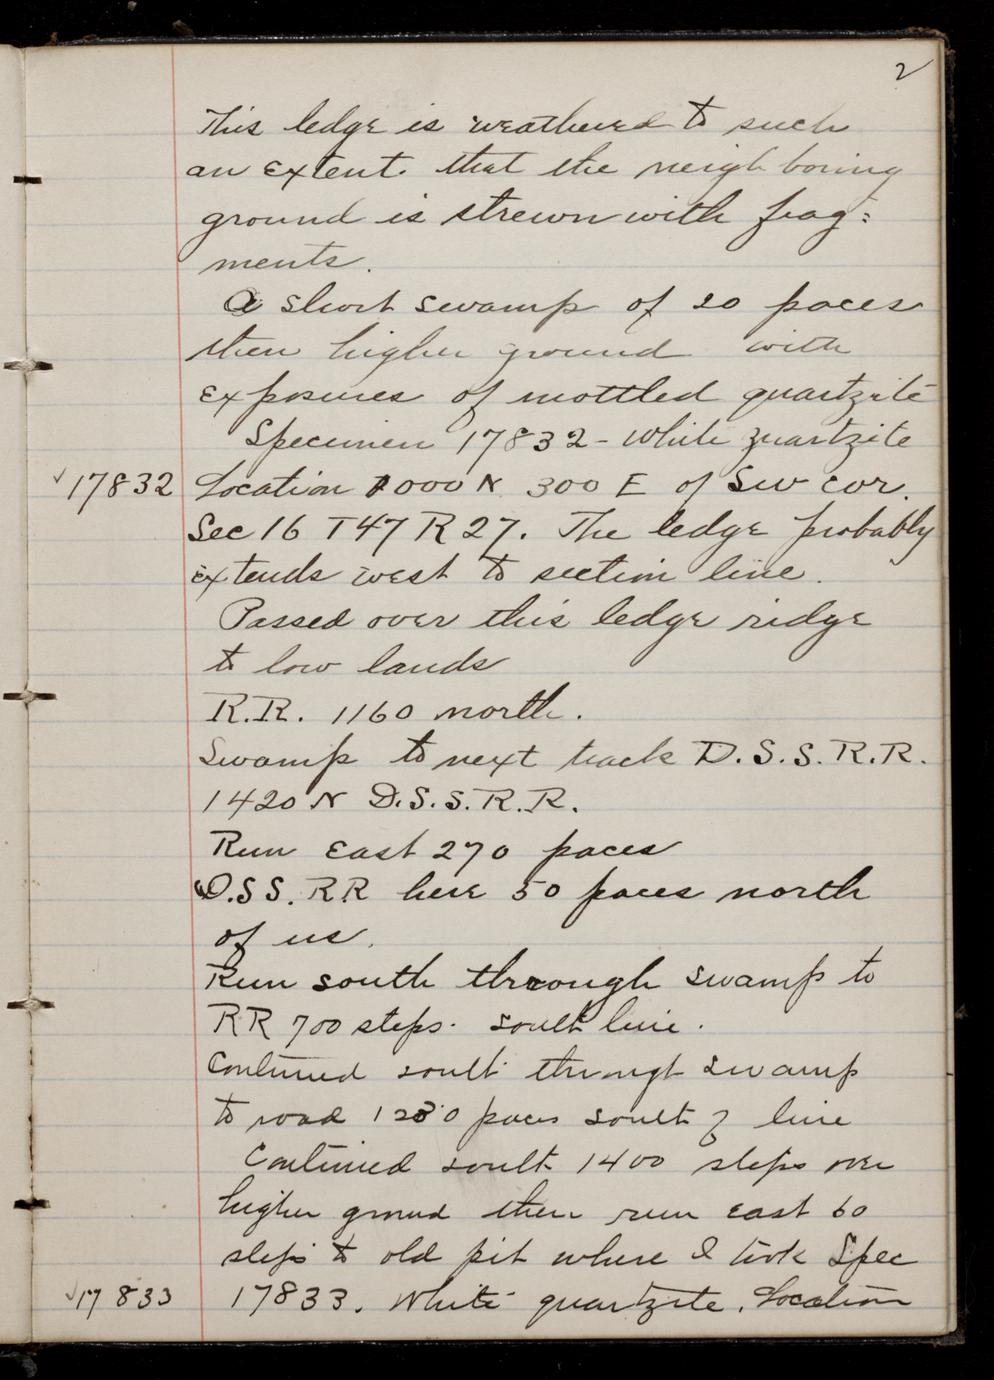 2
This ledge is weathered to such
an extent. that the neighboring
ground is strewn with frag:
ments.
A short swamp of 20 paces
then higher ground with
exposures of mottled quartzite
Specimen 17832 - White quartzite
✓17832 Location 1000 N 300 E of SW cor.
Sec 16 T47 R27. The ledge probably
extends west to section line.
Passed over this ledge ridge
to low lands
R.R. 1160 north.
Swamp to next track D.S.S.R.R.
1420 N D.S.S.R.R.
Run East 270 paces
D.S.S. RR here 50 paces north
of us.
Run south through swamp to
RR 700 steps. south line.
Continued south through swamp
to road 1280 paces south of line
Continued south 1400 steps over
higher ground then run east 60
steps to old pit where I took Spec
✓17833 17833. White quartzite. Location